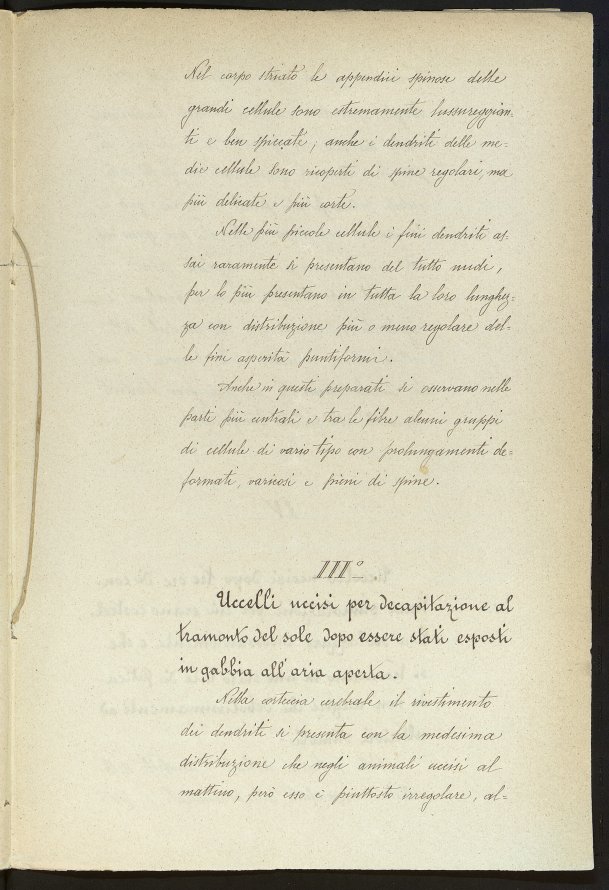 Nel corpo striato le appendici spinose delle
grandi cellule sono estremamente lussureggian-
ti e ben spiccate; anche i dendriti delle me-
die cellule sono ricoperti di spine regolari, ma
più delicate e più corte.
Nelle più piccole cellule i fini dendriti as-
sai raramente si presentano del tutto nudi,
per lo più presentano in tutta la loro lunghez-
za con distribuzione più o meno regolare del-
le fini asperità puntiformi.
Anche in questi preparati si osservano nelle
parti più centrali e tra le fibre alcuni gruppi
di cellule di vario tipo con prolungamenti de-
formati, varicosi e pieni di spine.
III°
Uccelli uccisi per decapitazione al
tramonto del sole dopo essere stati esposti
in gabbia all'aria aperta.
Nella corteccia cerebrale il rivestimento
dei dendriti si presenta con la medesima
distribuzione che negli animali uccisi al
mattino, però esso è piuttosto irregolare, al-